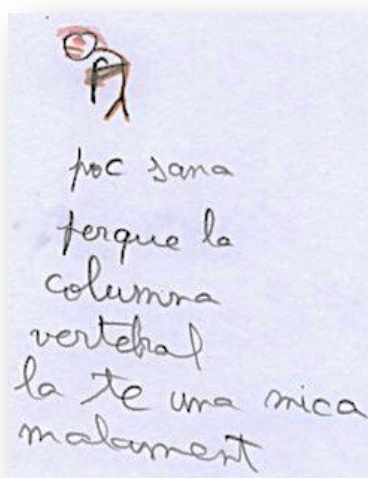 poc sana
perque la
columna
vertebral
la te una mica
malament